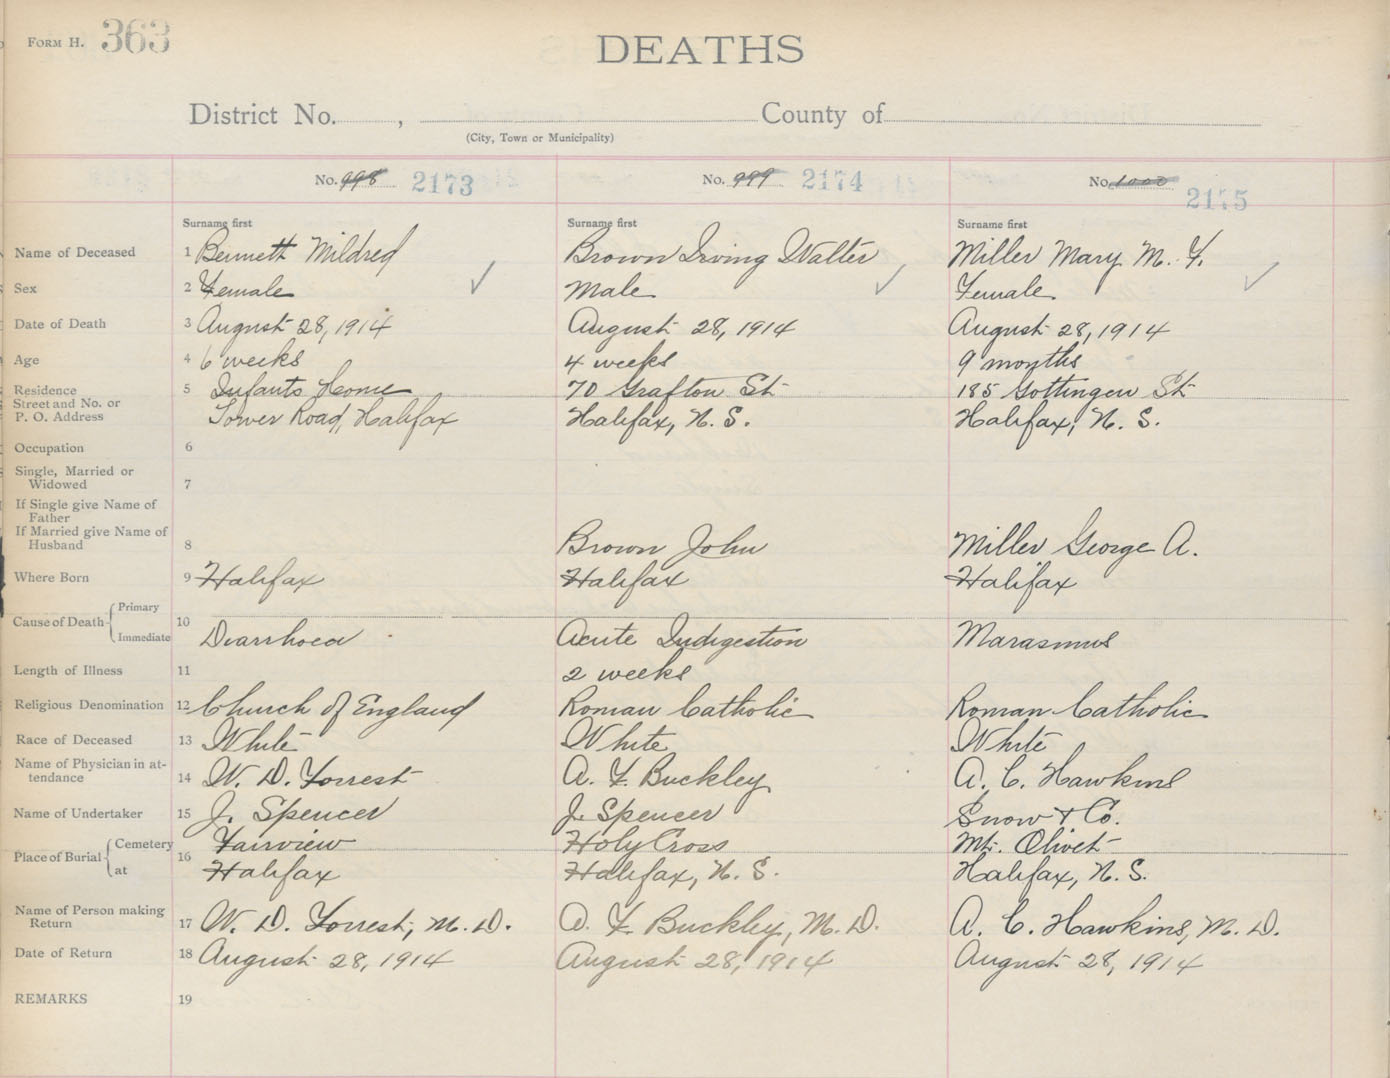 FORM H. 363
DEATHS
District No. , County of
(City, Town or Municipality)
No. 998 2173 No. 999 2174 No. 1000 2175
Surname first Surname first Surname first
Name of Deceased 1 Bennett Mildred Brown Irving Walter Miller Mary M. F.
Sex 2 Female Male Female
Date of Death 3 August 28, 1914 August 28, 1914 August 28, 1914
Age 4 6 weeks 4 weeks 9 months
Residence 5 Infants Home 70 Grafton St 185 Gottingen St
Street and No. or
P. O. Address Tower Road, Halifax Halifax, N. S. Halifax, N. S.
Occupation 6
Single, Married or
Widowed 7
If Single give Name of
Father
If Married give Name of
Husband 8 Brown John Miller George A.
Where Born 9 Halifax Halifax Halifax
Primary
Cause of Death 10
Immediate Diarrhoea Acute Indigestion Marasmus
Length of Illness 11 2 weeks
Religious Denomination 12 Church of England Roman Catholic Roman Catholic
Race of Deceased 13 White White White
Name of Physician in at-
tendance 14 W. D. Forrest A. F. Buckley A. C. Hawkins
Name of Undertaker 15 J. Spencer J. Spencer Snow & Co.
Cemetery Fairview Holy Cross Mt. Olivet
Place of Burial 16
at Halifax Halifax, N. S. Halifax, N. S.
Name of Person making
Return 17 W. D. Forrest, M. D. A. F. Buckley, M. D. A. C. Hawkins, M. D.
Date of Return 18 August 28, 1914 August 28, 1914 August 28, 1914
REMARKS 19